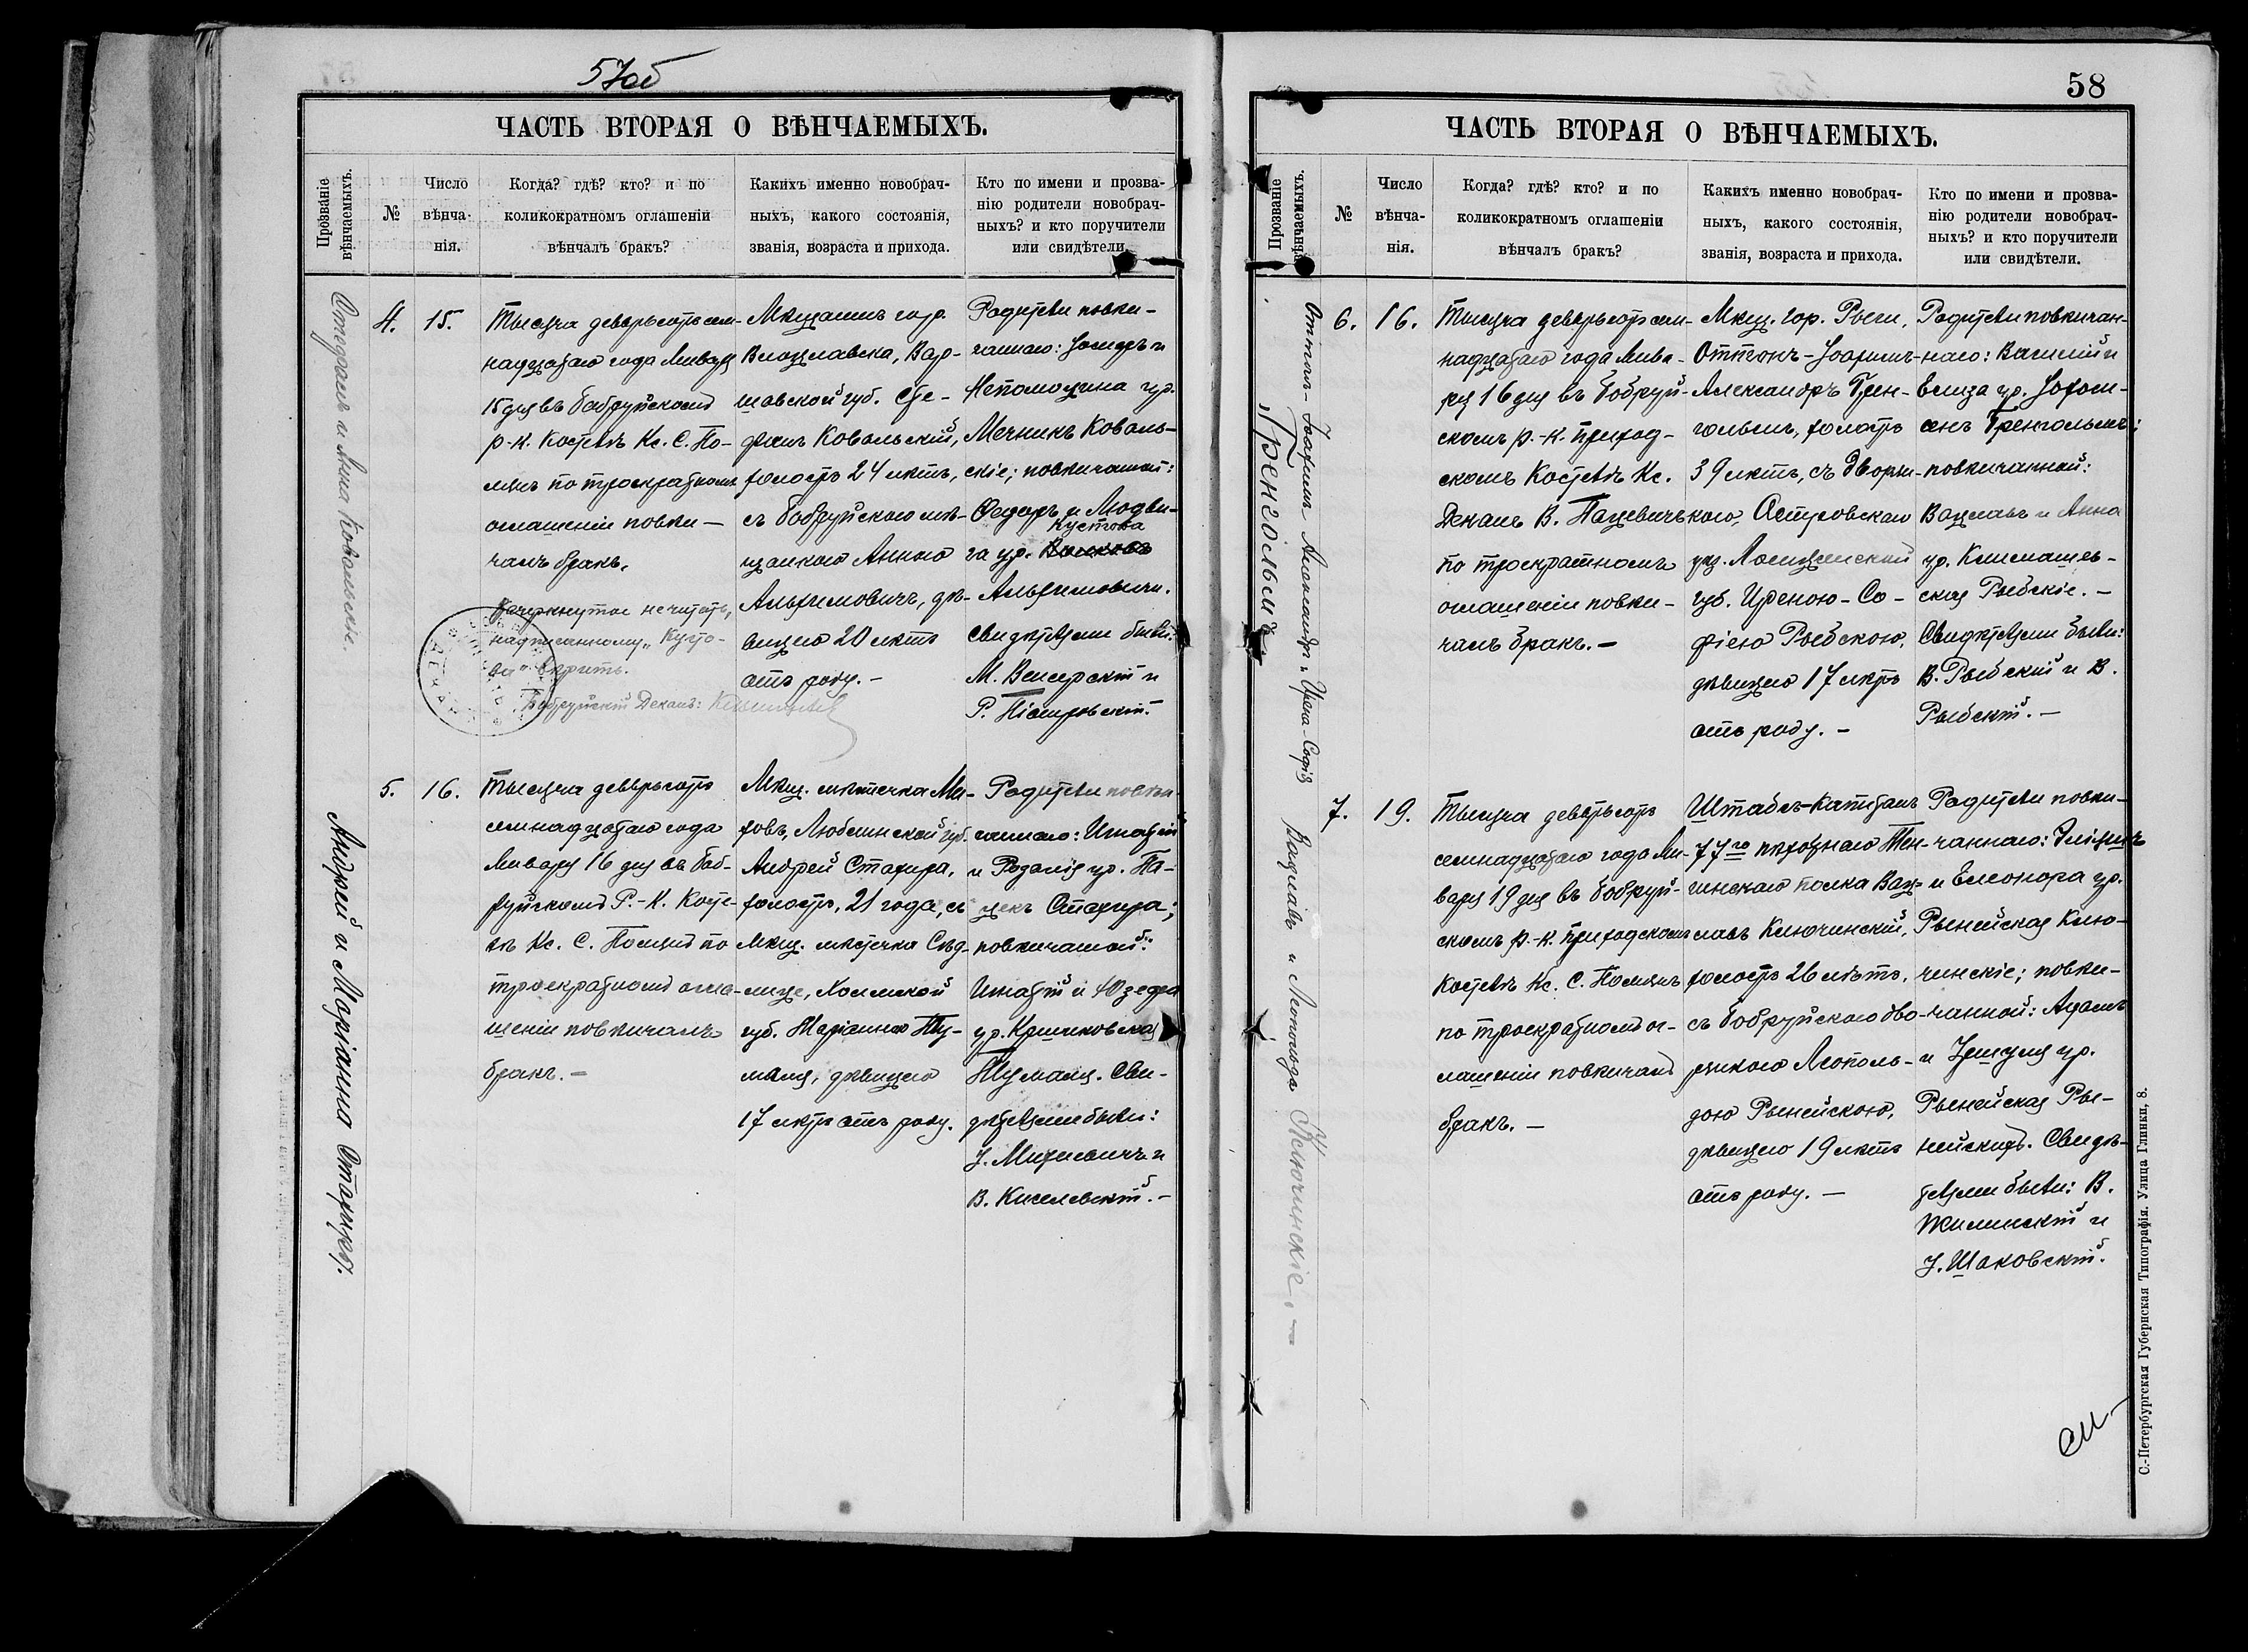 57об
ЧАСТЬ ВТОРАЯ О ВѢНЧАЕМЫХЪ.
Прозваніе
вѣнчаемыхъ.
№
Число
вѣнча-
нія.
Когда? гдѣ? кто? и по
коликократномъ оглашеніи
вѣнчалъ бракъ?
Какихъ именно новобрач-
ныхъ, какого состоянія,
званія, возраста и прихода.
Кто по имени и прозва-
нію родители новобрач-
ныхъ? и кто поручители
или свидѣтели.
и Анна Ковальскіе.
4.
15.
Тысяча девятьсотъ сем-
надцатаго года Января
15 дня въ Бобруйскомъ
р.-к. Костелѣ Кс. С. По-
мянъ по троекратномъ
оглашеніи повѣн-
чалъ бракъ.
Зачеркнутое не читать,
надписанному „Кусто-
ва" вѣрить.
Бобруйскій Деканъ:
Мѣщанинъ гор.
Влоцлавска, Вар-
шавской губ. Сте-
фанъ Ковальскій,
холостъ 24 лѣтъ,
съ Бобруйскою мѣ-
щанкою Анною
Альхимовичъ, дѣ-
вицею 20 лѣтъ
отъ роду. -
Родители повѣн-
чаннаго: Іосифъ и
Непомоцина ур.
Мечникъ Коваль-
скіе; повѣнчанной:
Федоръ и Людви-
Кустова
га ур.
Альхимовичи.
Свидѣтелями были:
М. Венгерскій и
Р. Піотровскій.
Андрей и Маріанна Стахира.
5.
16.
Тысяча девятьсотъ
семнадцатаго года
Января 16 дня въ Боб-
руйскомъ Р.-К. Косте-
лѣ Кс. С. Помянъ по
троекратномъ огла-
шеніи повѣнчалъ
бракъ. -
Мѣщ. мѣстечка Ми-
ховъ, Люблинской губ.
Андрей Стахира,
холостъ, 21 года, съ
мѣщ. мѣстечка Сѣд-
лище, Холмской
губ. Маріанною Ту-
маля, дѣвицею
17 лѣтъ отъ роду.
Родители повѣн-
чаннаго: Игнатій
и Розалія ур. Па-
цекъ Стахира;
повѣнчанной:
Игнатій и Юзефа
ур. Кршиковская
Тумаля. Сви-
дѣтелями были:
В. Киселевскій. -
58
ЧАСТЬ ВТОРАЯ О ВѢНЧАЕМЫХЪ.
Прозваніе
вѣнчаемыхъ.
№
Число
вѣнча-
нія.
Когда? гдѣ? кто? и по
коликократномъ оглашеніи
вѣнчалъ бракъ?
Какихъ именно новобрач-
ныхъ, какого состоянія,
званія, возраста и прихода.
Кто по имени и прозва-
нію родители новобрач-
ныхъ? и кто поручители
или свидѣтели.
Іоахимъ Александръ и Ирена-Софія
Гренгольмъ
6.
16.
Тысяча девятьсотъ сем-
надцатаго года Янва-
ря 16 дня въ Бобруй-
скомъ р.-к. приход-
скомъ Костелѣ Кс.
Деканъ В. Пацевичъ
по троекратномъ
оглашеніи повѣн-
чалъ бракъ. -
Мѣщ. гор. Риги,
Александръ Грен-
гольмъ, холостъ
39 лѣтъ, съ дворян-
кою, Островскаго
уѣз. Ломжинской
губ. Иреною-Со-
фіею Рыбскою,
дѣвицею 17 лѣтъ
отъ роду. -
Родители повѣнчан-
наго: Василій и
Елиза ур. Іохом-
сенъ Гренгольмъ;
повѣнчанной:
Вацлавъ и Анна
ур. Климашев-
ская Рыбскіе. -
Свидѣтелями были:
В. Рыбскій и В.
Рыбскій. -
Вацлавъ и Леопольда Ключинскіе. -
7.
19.
Тысяча девятьсотъ
семнадцатаго года Ян-
варя 19 дня въ Бобруй-
скомъ р.-к. приходскомъ
Костелѣ Кс. С. Помянъ
по троекратномъ ог-
лашеніи повѣнчалъ
бракъ. -
Штабсъ-Капитанъ
77го пѣхотнаго Тен-
гинскаго полка Вац-
лавъ Ключинскій,
холостъ 26 лѣтъ,
съ Бобруйскою дво-
рянкою Леополь-
дою Рынейскою,
дѣвицею 19 лѣтъ
отъ роду. -
Родители повѣн-
чаннаго: Фелиціанъ
и Елеонора ур.
Рынейская Клю-
чинскіе; повѣн-
чанной: Адамъ
и Уршуля ур.
Рынейская Ры-
нейскихъ. Свидѣ-
телями были: В.
Жилинскій и
І. Шаковскій.
С.-Петербургская Губернская Типографія. Улица Глинки, 8.